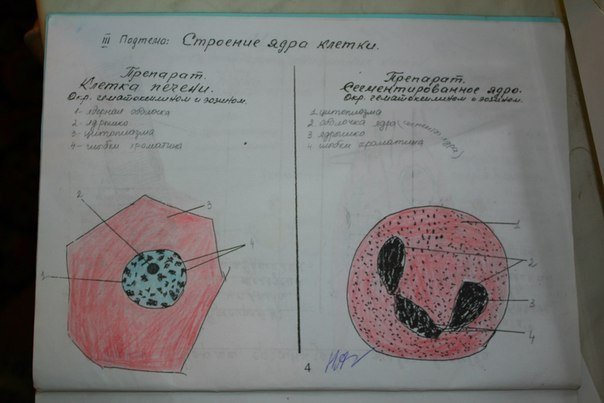 III Подтема: Строение ядра клетки.
Препарат.
Клетка печени.
Окр. гематоксилином и эозином.
1- ядерная оболочка
2- ядрышко
3- цитоплазма
4- глыбки хроматина
2
3
4
1
Препарат.
Сегментированное ядро.
Окр. гематоксилином и эозином.
1 цитоплазма
2 оболочка ядра (сегмент ядра)
3 ядрышко
4 глыбки хроматина
1
2
3
4
4